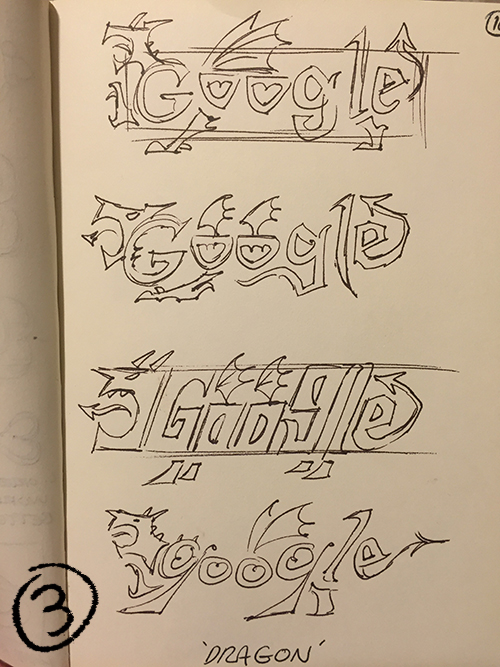 Google
Google
Google
google
3
'DRAGON'